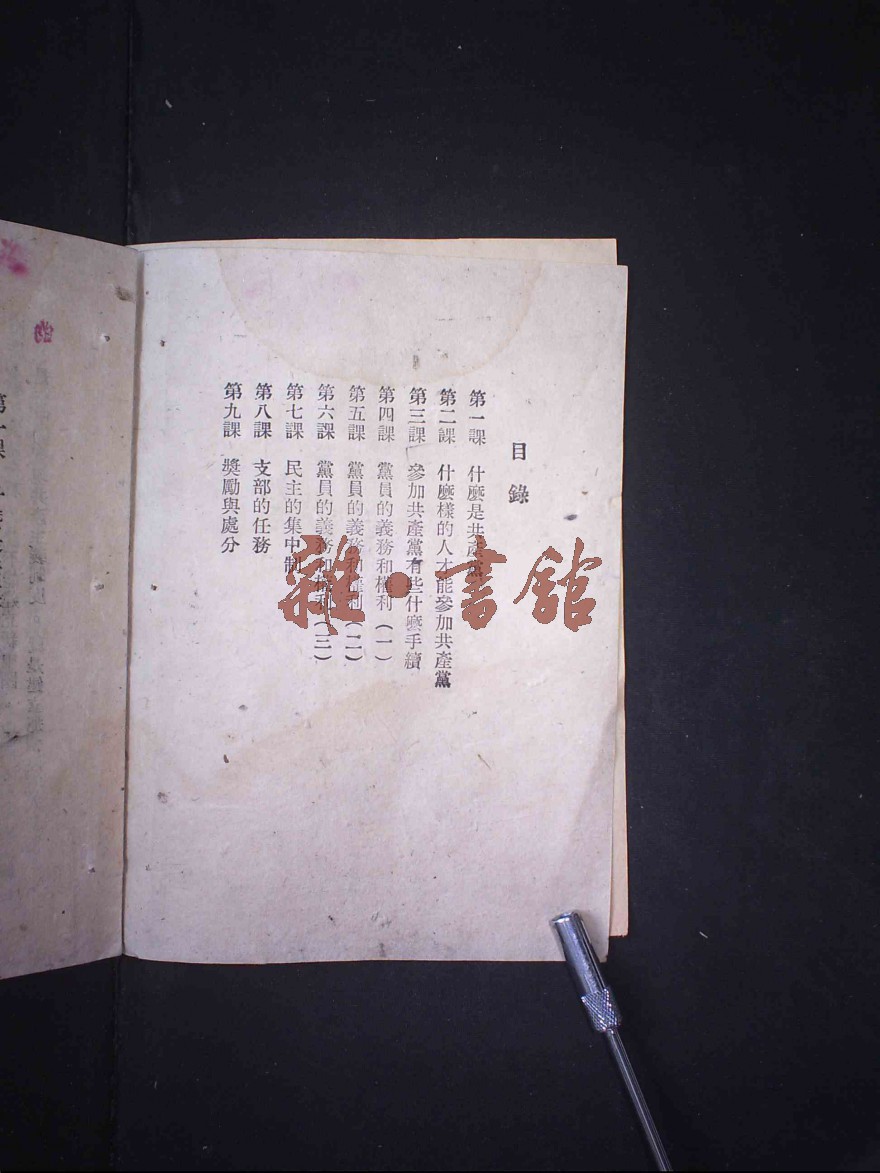 目錄
第一課 什麼是共產黨
第二課 什麼樣的人才能參加共產黨
第三課 參加共產黨有些什麼手續
第四課 黨員的義務和權利（一）
第五課 黨員的義務和權利（二）
第六課 黨員的義務和權利（三）
第七課 民主的集中制
第八課 支部的任務
第九課 獎勵與處分
雜·書館